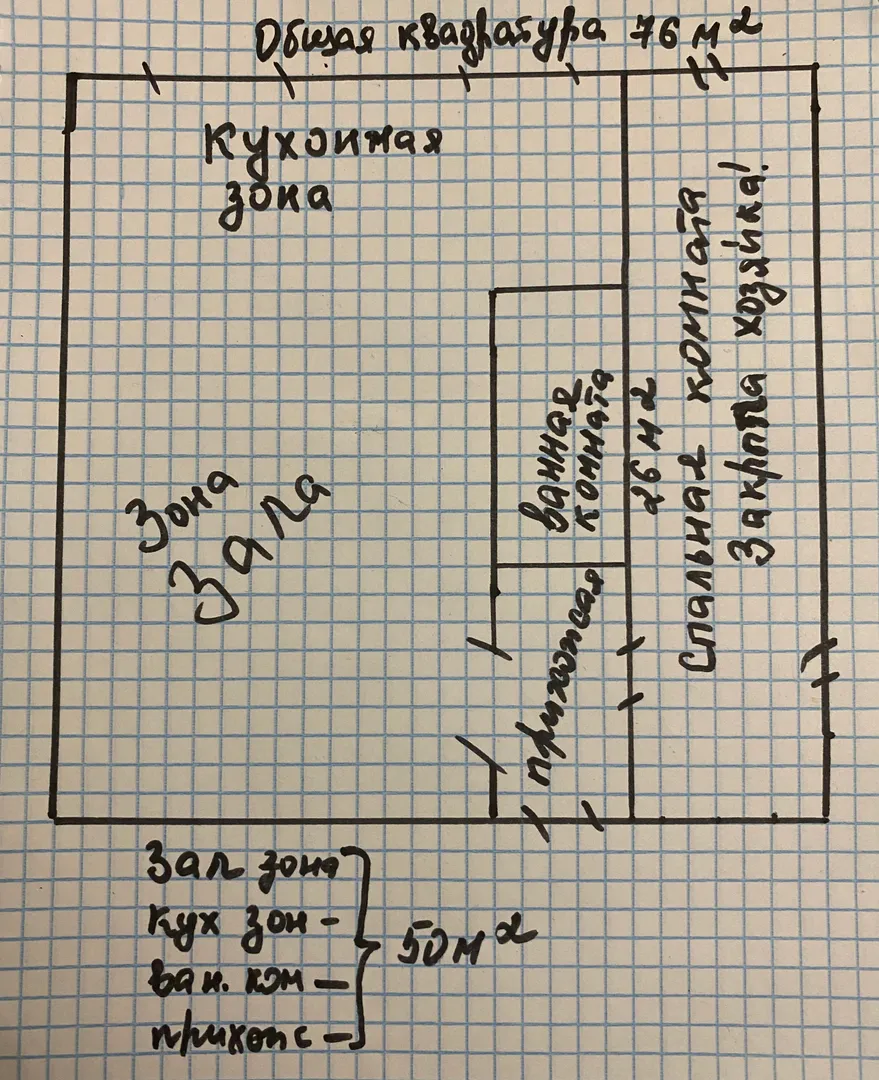 Общая квадратура 76 м²
Кухонная
зона
Зона
Зала
ванная
комната
прихожая
26 м²
Спальная комната
Закрыта хозяйка!
Зал зона
кух зон -
ван. ком -
прихож -
50 м²